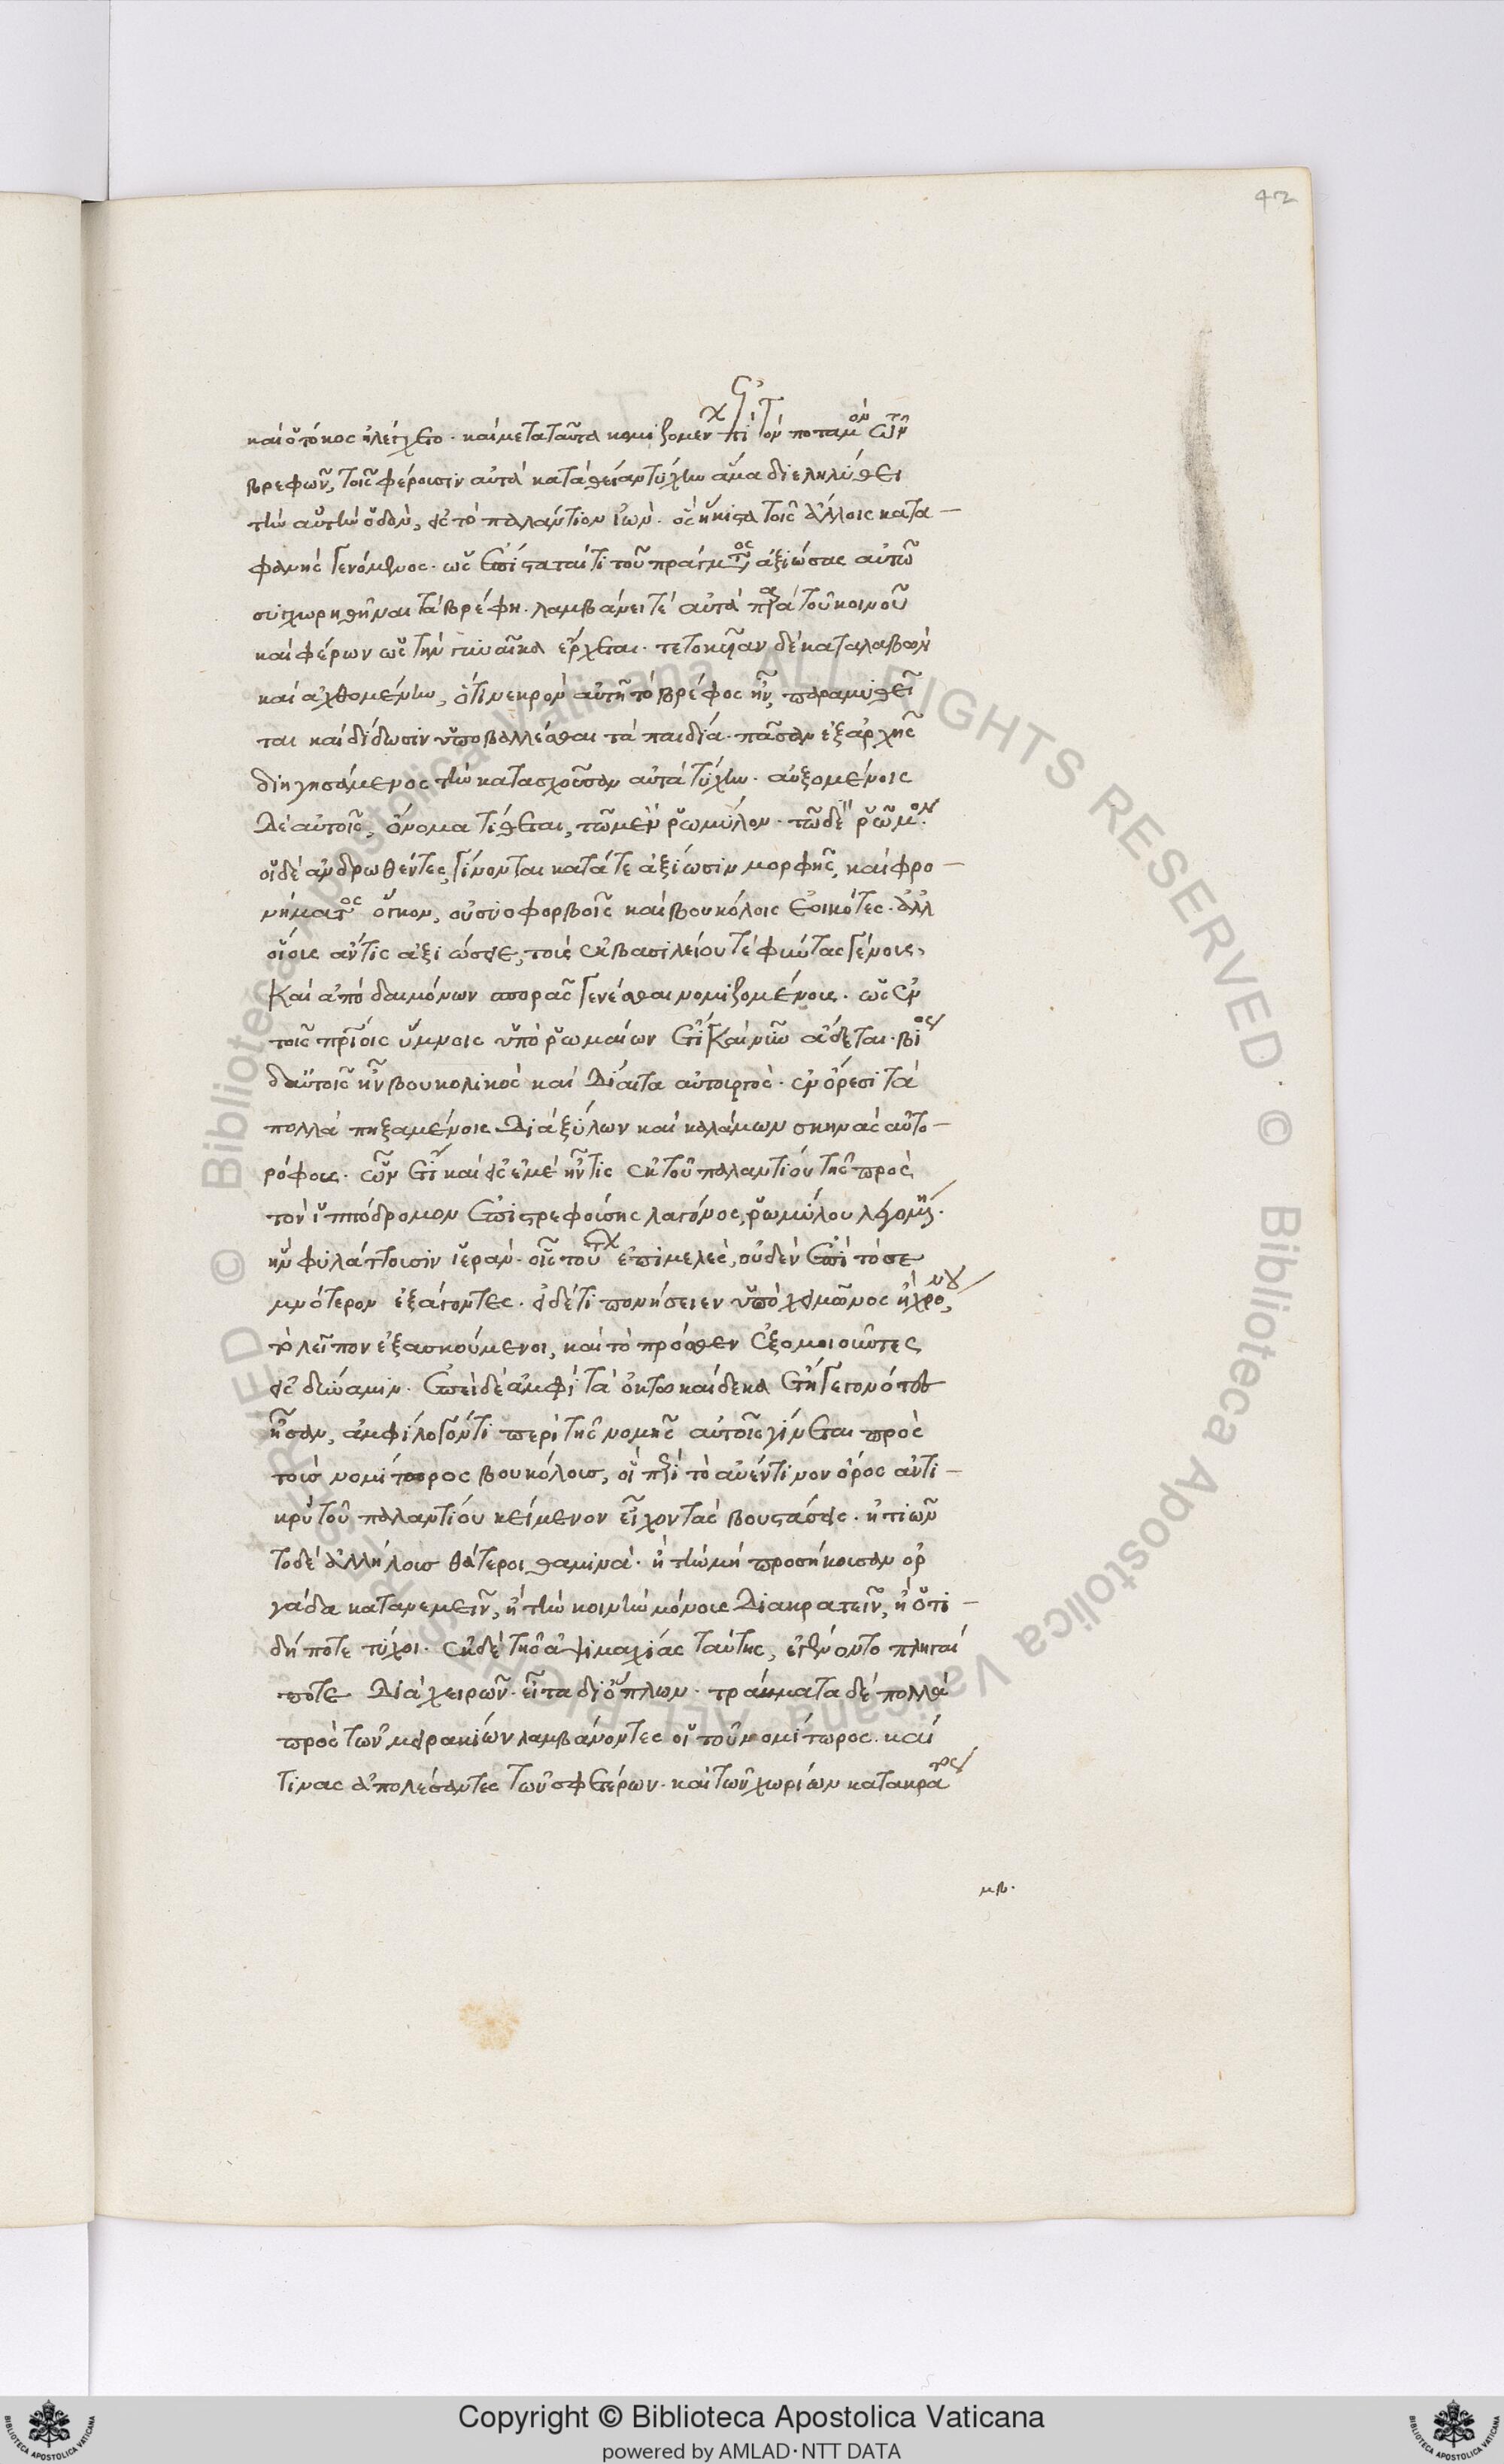 42
καὶ ὁ τόκος ἠλέγχετο. καὶ μετὰ ταῦτα κομιζομεν ἐπὶ τὸν ποταμὸν τῶν
βρεφῶν, τοῖς φέρουσιν αὐτὰ κατὰ θείαν τύχην ἅμα διεληλύθει
τὴν αὐτὴν ὁδὸν, εἰς τὸ παλάντιον ἰὼν. ὃς ἥκιστα τοῖς ἄλλοις κατα–
φανὴς γενόμενος. ὡς ἐπίσταταί τι τοῦ πράγματος, ἀξιώσας αὐτῶ
συγχωρηθῆναι τὰ βρέφη. λαμβάνει τὲ αὐτὰ παρὰ τοῦ κοινοῦ
καὶ φέρων ὡς τὴν γυναῖκα ἔρχεται. τετοκυῖαν δὲ καταλαβὼν
καὶ ἀχθομένην, ὅτι νεκρὸν αὐτῆ τὸ βρέφος ἦν, παραμυθεῖ
ται καὶ δίδωσιν ὑποβαλλέσθαι τὰ παιδία. πᾶσαν ἐξαρχῆς
διηγησάμενος τὴν κατασχοῦσαν αὐτὰ τύχην. αὐξομένοις
δὲ αὐτοῖς, ὄνομα τίθεται, τῶ μὲν ῥωμύλον. τῶ δὲ ῥῶμον.
οἱ δὲ ἀνδρωθέντες, γίνονται κατά τε ἀξίωσιν μορφῆς, καὶ φρο–
νήματος ὄγκον, οὐ συοφορβοῖς καὶ βουκόλοις ἐοικότες. ἀλλ
οἵους ἄν τις ἀξιώσειε, τοὺς ἐκ βασιλείου τὲ φύντας γένους,
καὶ ἀπὸ δαιμόνων σπορᾶς γενέσθαι νομιζομένους. ὡς ἐν
τοῖς πατρίοις ὕμνοις ὑπὸ ῥωμαίων ἔτι καὶ νῦν ἄδεται. βίος
δαὐτοῖς ἦν βουκολικὸς καὶ δίαιτα αὐτουργὸς. ἐν ὄρεσι τὰ
πολλὰ πηξαμένοις διὰ ξύλων καὶ καλάμων σκηνὰς αὐτο–
ρόφους. ὧν ἔτι καὶ εἰς ἐμὲ ἦν τις ἐκ τοῦ παλαντίου τῆς πρὸς
τὸν ἱππόδρομον ἐπιστρεφούσης λαγόνος, ῥωμύλου λεγομένη.
ἣν φυλάττουσιν ἱερὰν. οἷς τούτων ἐπιμελὲς, οὐδὲν ἐπὶ τὸ σε
μνότερον ἐξάγοντες. εἰ δέ τι πονήσειεν ὑπὸ χειμῶνος ἢ χρόνου,
τὸ λεῖπον ἐξασκούμενοι, καὶ τὸ πρόσθεν ἐξομοιοῦντες
εἰς δύναμιν. ἐπεὶ δὲ ἀμφὶ τὰ ὀκτωκαίδεκα ἔτη γεγονότες
ἦσαν, ἀμφίλογόν τι περὶ τῆς νομῆς αὐτοῖς γίνεται πρὸς
τοὺς νομίτορος βουκόλους, οἳ περὶ τὸ αὐέντινον ὄρος ἀντι–
κρὺ τοῦ παλαντίου κείμενον εἶχον τὰς βουστάσεις. ἠτιῶν
το δὲ ἀλλήλους θάτεροι θαμινὰ. ἢ τὴν μὴ προσήκουσαν ὀρ
γάδα κατανεμεῖν, ἢ τὴν κοινὴν μόνους διακρατεῖν, ἢ ὅτι–
δήποτε τύχοι. ἐκ δὲ τῆς ἁψιμαχίας ταύτης, ἐγένοντο πληγαί
ποτε διὰ χειρῶν. εἶτα δι ὅπλων. τραύματα δὲ πολλὰ
πρὸς τῶν μειρακίων λαμβάνοντες οἱ τοῦ νομίτωρος. καί
τινας ἀπολέσαντες τῶν σφετέρων. καὶ τῶν χωρίων κατακρα
μβ.
© Biblioteca Apostolica Vaticana ALL RIGHTS RESERVED
Copyright © Biblioteca Apostolica Vaticana
powered by AMLAD·NTT DATA
BIBLIOTECA APOSTOLICA VATICANA
BIBLIOTECA APOSTOLICA VATICANA